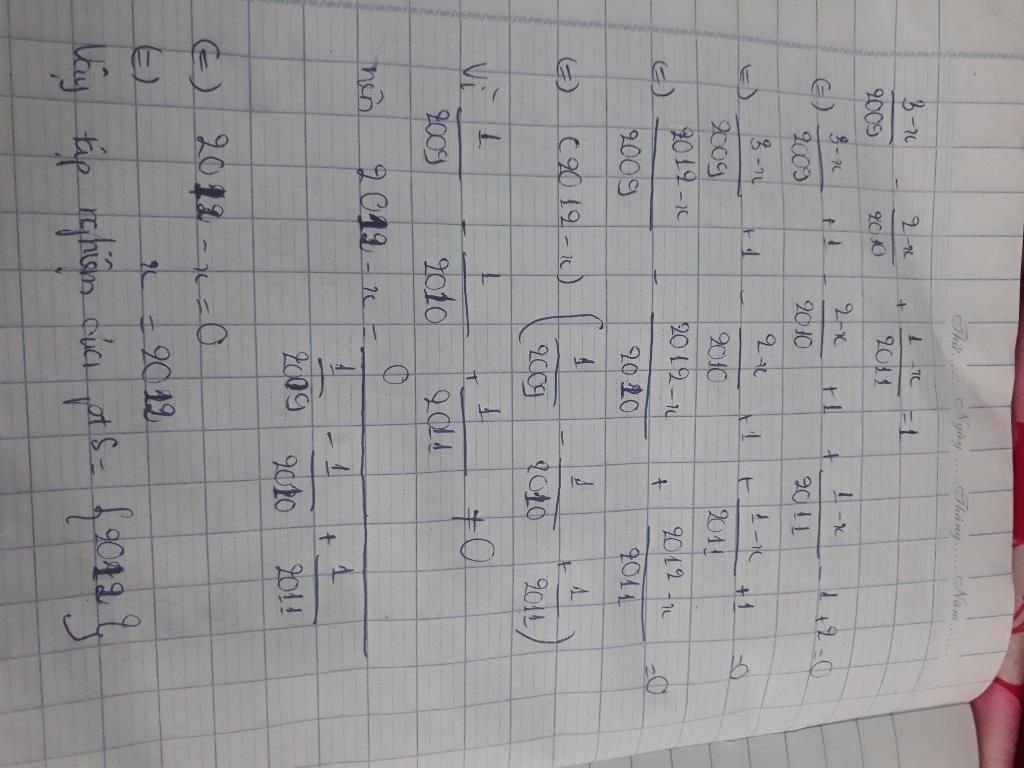 Thứ......Ngày......Tháng......Năm......
3-x/2009 - 2-x/2010 + 1-x/2011 = 1
(=) 3-x/2009 + 1 - 2-x/2010 + 1 + 1-x/2011 - 1 + 2 = 0
(=) 3-x/2009 + 1 - 2-x/2010 + 1 + 1-x/2011 + 1 = 0
(=) 2012-x/2009 - 2012-x/2010 + 2012-x/2011 = 0
(=) (2012-x) (1/2009 - 1/2010 + 1/2011)
Vì 1/2009 - 1/2010 + 1/2011 ≠ 0
nên 2012-x = 0/(1/2009 - 1/2010 + 1/2011)
(=) 2012 - x = 0
(=) x = 2012
Vậy tập nghiệm của pt S = {2012}